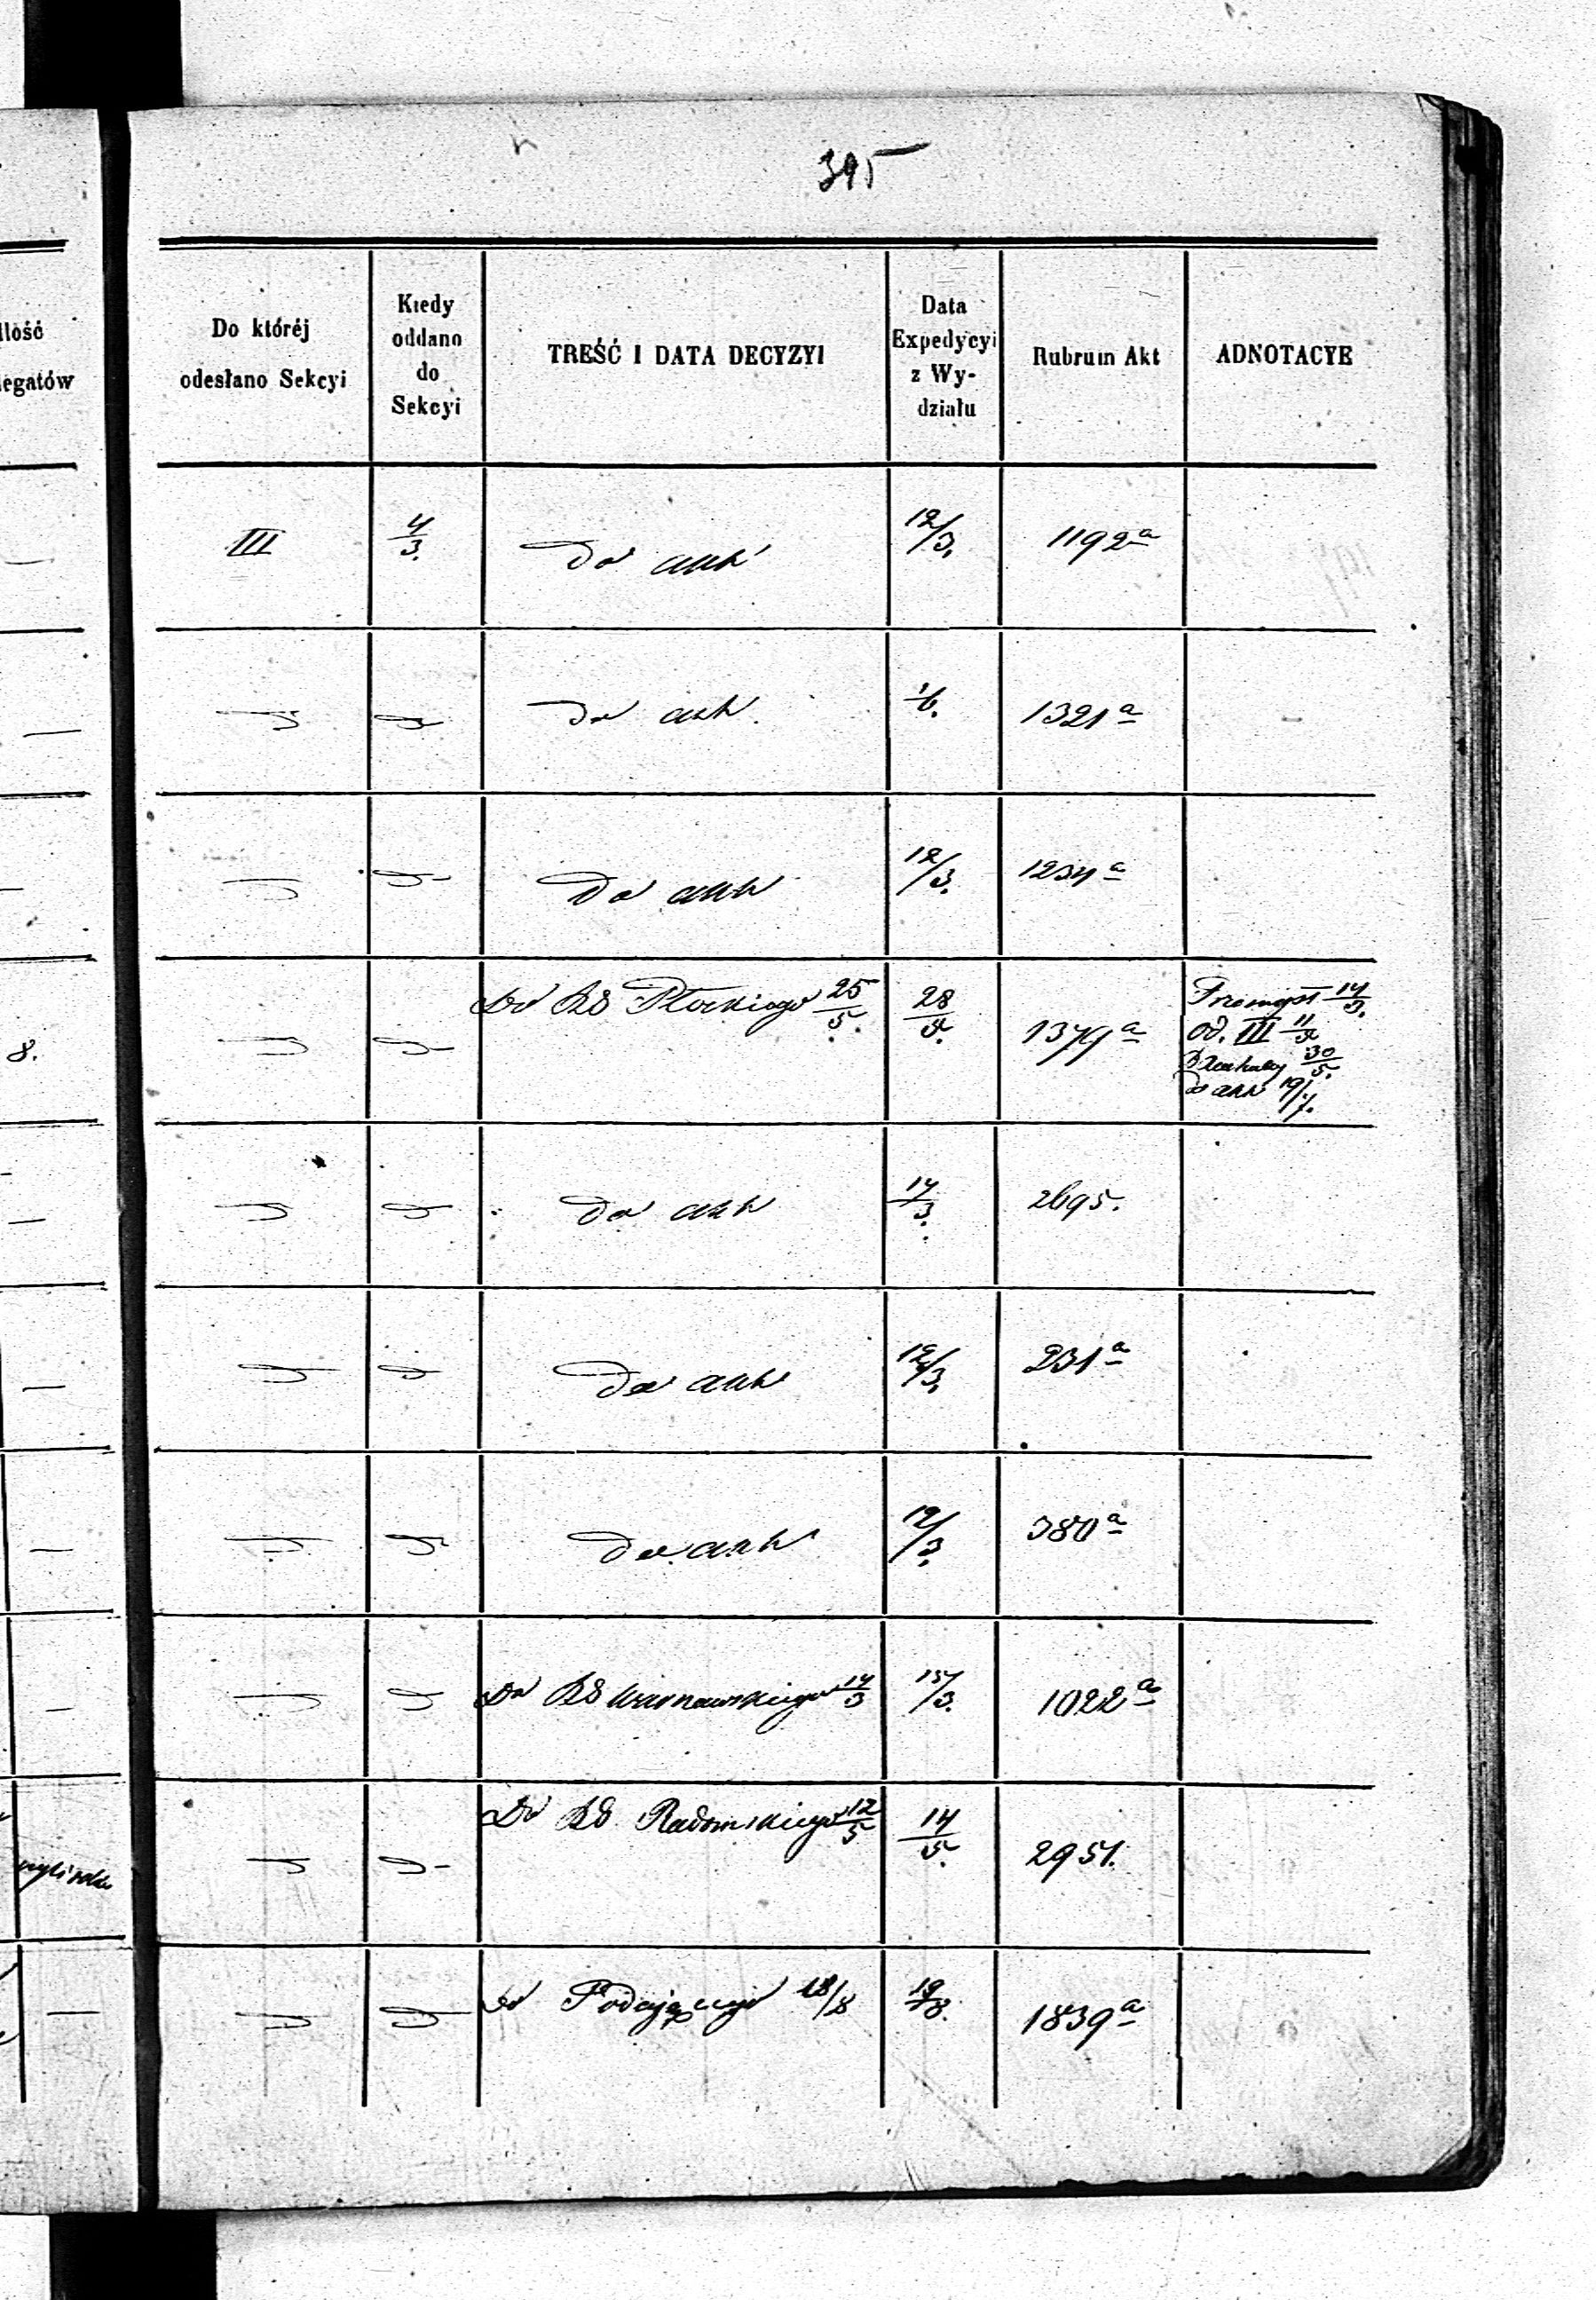 395
ilość
legatów
Do któréj
odesłano Sekcyi
Kiedy
oddano
do
Sekcyi
TREŚĆ I DATA DECYZYI
Data
Expedycyi
z Wy-
działu
Rubrum Akt
ADNOTACYE
III 4/3. Do akt 12/3. 1192a
Do akt. 1321a
Do akt 12/3. 1234a
8.
Do RG Płockiego 25/5. 28/5. 1379a
Przemysł 14/3.
od. III
30/5.
do akt 19/7.
Do akt 14/3. 2695.
Do akt 12/3. 231a
Do akt 12/3. 380a
Do RG Warszawskiego 14/3 15/3. 1022a
Do RG. Radomskiego 12/5 14/5. 2951.
Do Podającego 18/8 19/8. 1839a